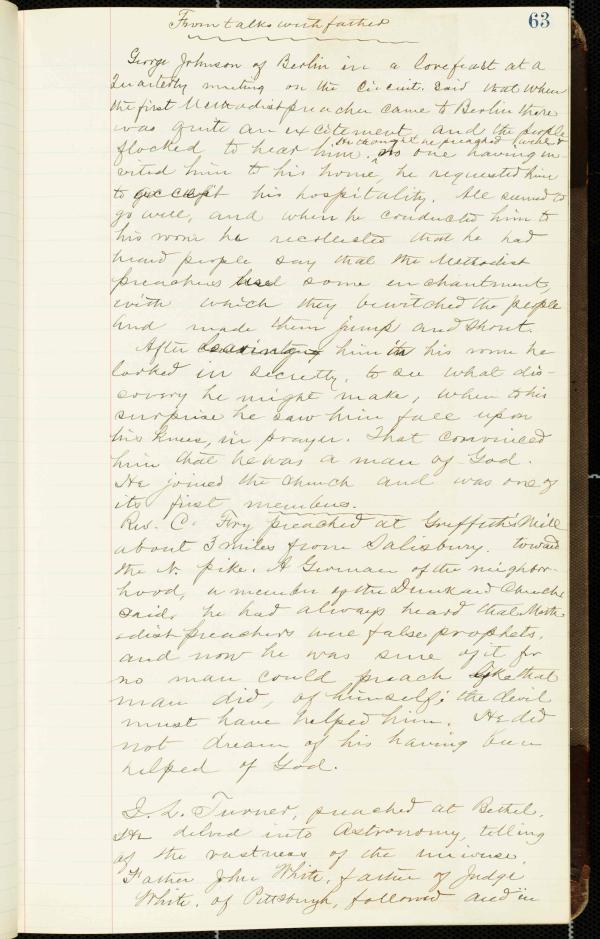 From talks with father
63
George Johnson of Berlin in a lovefeast at a
Quarterly meeting on the Circuit. Said that when
the first Methodist preacher came to Berlin there
was quite an excitement, and the people
flocked to hear him. he preached well &
no one having in-
vited him to his home, he requested him
to accept his hospitality. All seemed to
go well, and when he conducted him to
his room he recollected that he had
heard people say that the Methodist
preachers used some enchantment,
with which they bewitched the people
and made them jump and shout.
After him in his room he
looked in secretly, to see what dis-
covery he might make, when to his
surprise he saw him fall upon
his knees, in prayer. That convinced
him that he was a man of God.
He joined the church and was one of
its first members.
Rev. C. Fry preached at Griffith's Mill
about 3 miles from Salisbury. toward
the N. pike. A German of the neighbor-
hood, a member of the Dunkard Church
said, he had always heard that Meth-
odist preachers were false prophets,
and now he was sure of it for
no man could preach like that
man did, of himself; the devil
must have helped him. He did
not dream of his having been
helped of God.
I. L. Turner, preached at Bethel.
He delved into Astronomy, telling
of the vastness of the universe.
Father John White, father of Judge
White, of Pittsburgh, followed and in